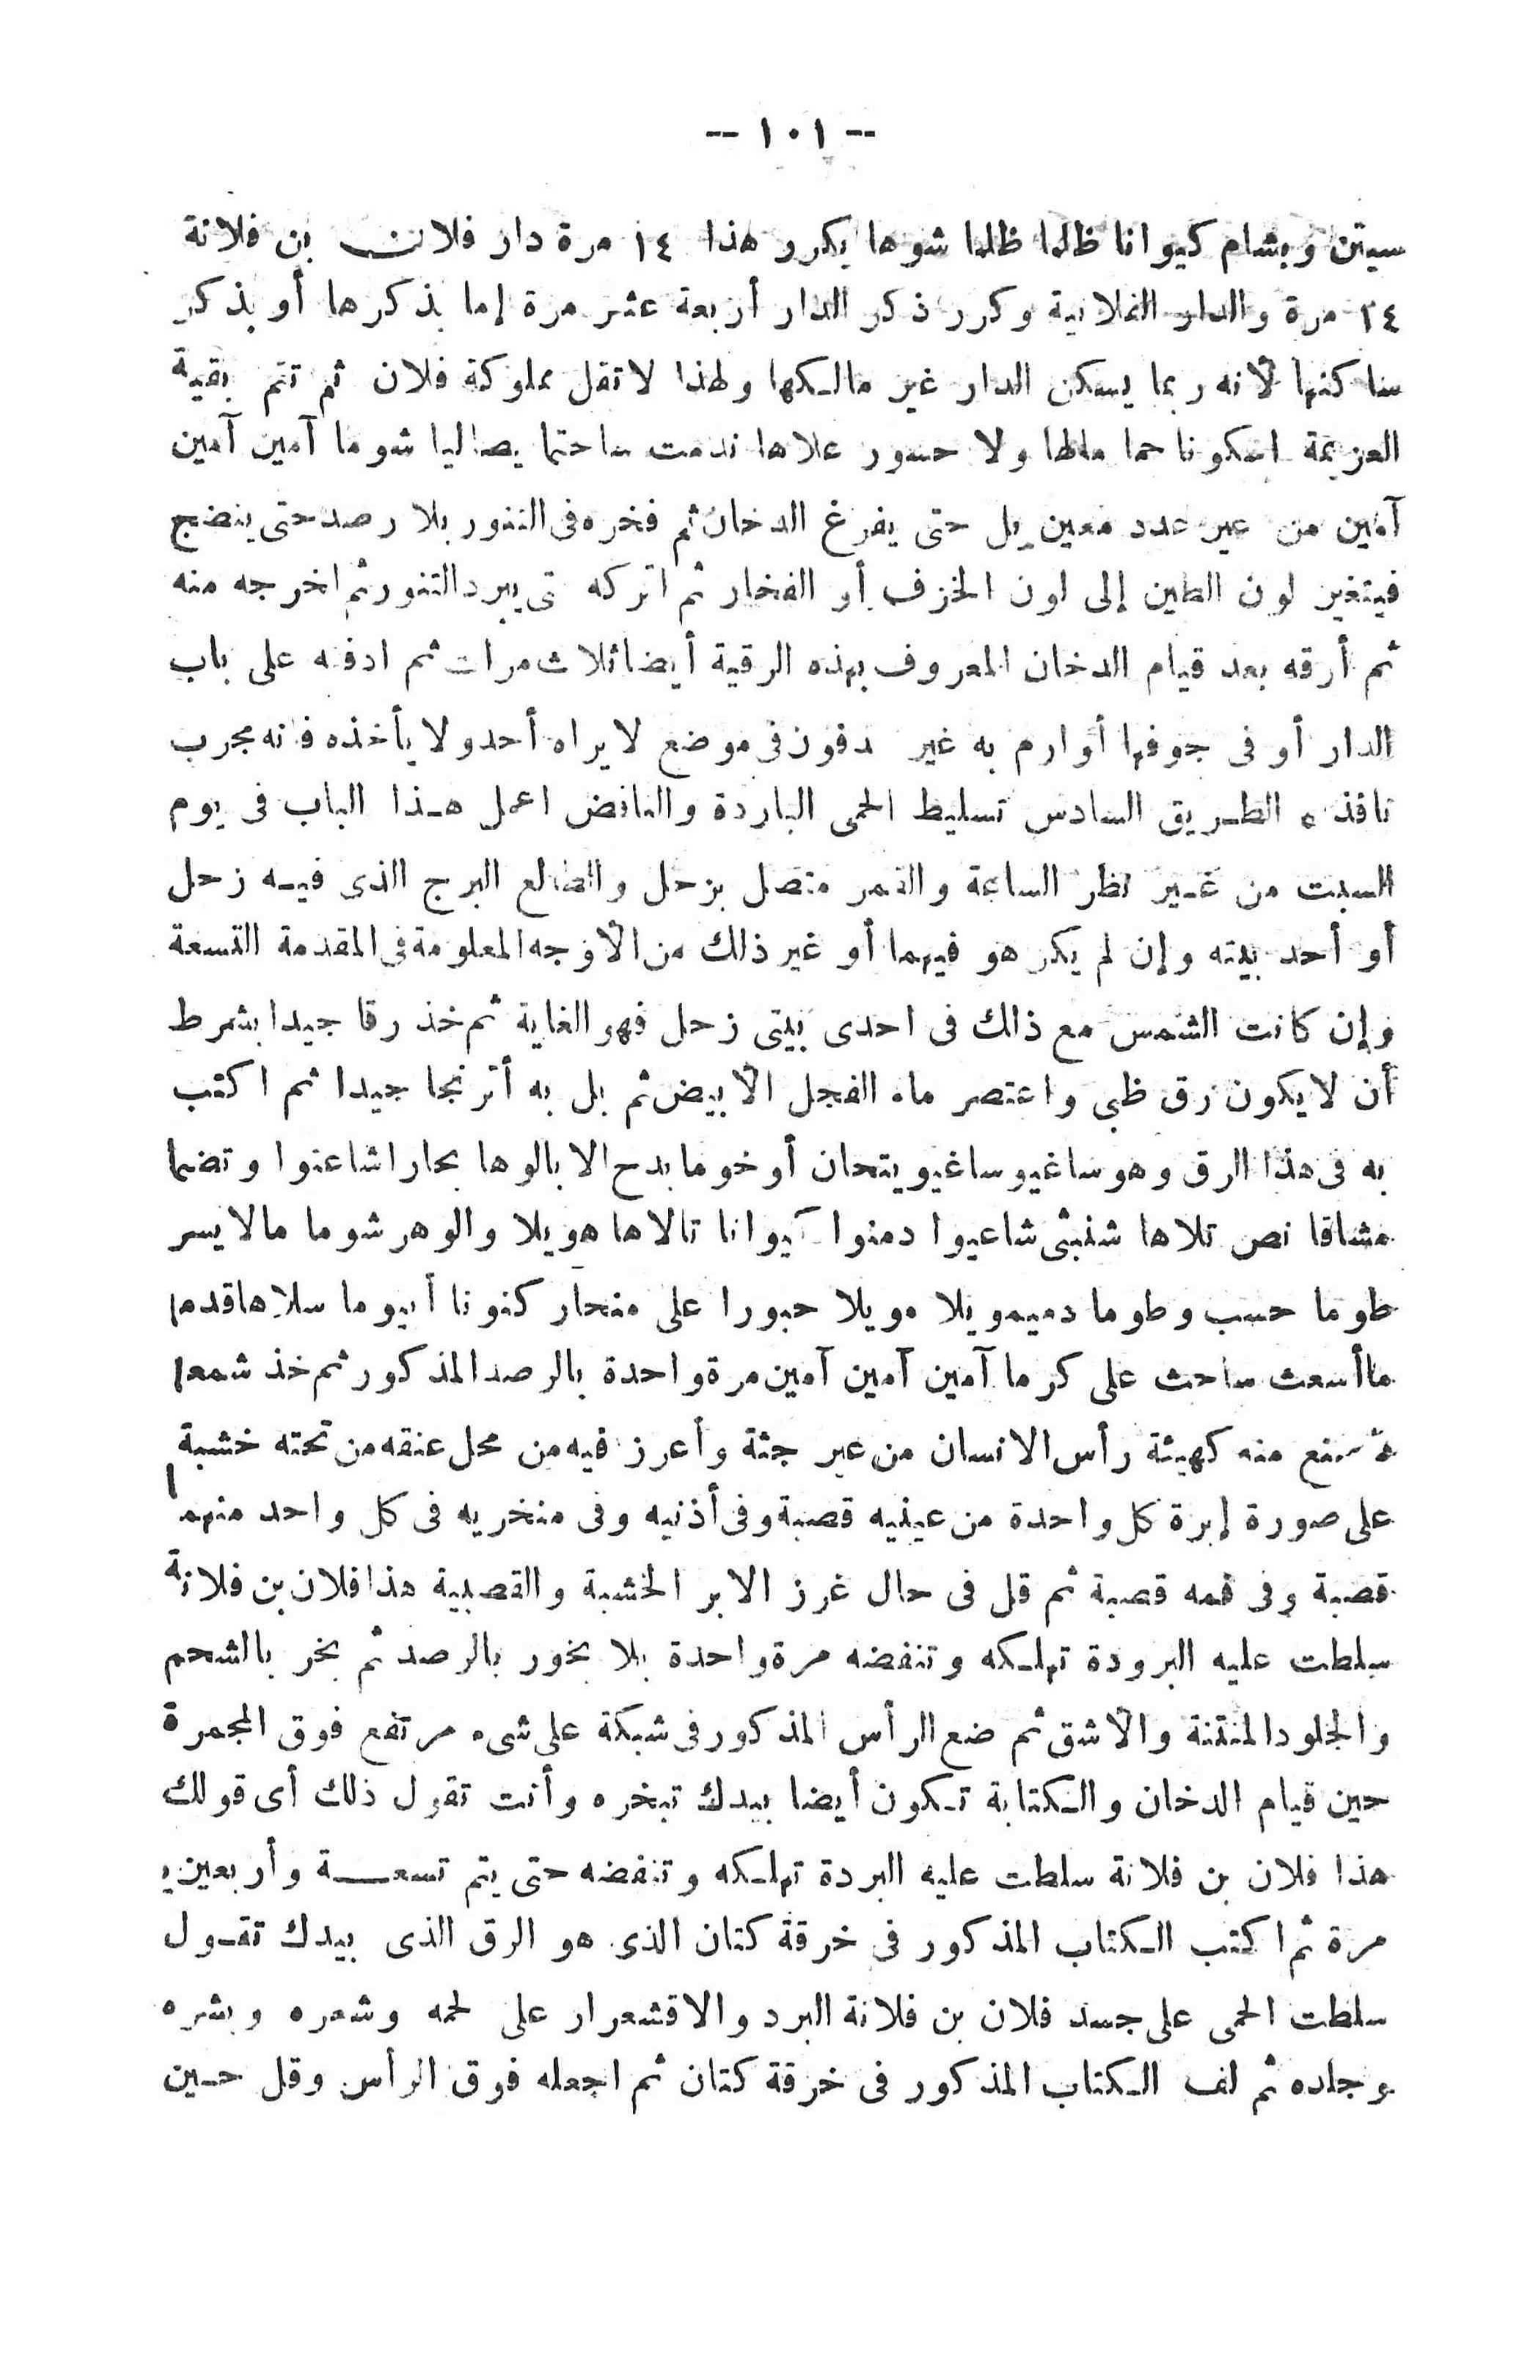 -- ١٠١ --
سيتن وبشام كيوانا ظالما ظالما شوها يكرر هذا ١٤ مرة دار فلان بن فلانة
١٤ مرة والدار الفلانية وكرر ذكر الدار أربعة عشر مرة إما بذكرها أو بذكر
ساكنها لأنه ربما يسكن الدار غير مالكها ولهذا لا تقل مملوكة فلان ثم تتم بقية
العزيمة اسكونا حما ماطا ولا حسور علاها ندمت ساحتما يصاليا شوما آمين آمين
آمين من غير عدد معين بل حتى يفرغ الدخان ثم فخره فى التنور بلا رصد حتى ينضج
فيتغير لون الطين إلى لون الخزف أو الفخار ثم اتركه تى يبرد التنور ثم اخرجه منه
ثم أرقه بعد قيام الدخان المعروف بهذه الرقية أيضا ثلاث مرات ثم ادفنه على باب
الدار أو فى جوفها أو ارم به غير دفون فى موضع لا يراه أحد ولا يأخذه فانه مجرب
نافذ ٥ الطريق السادس تسليط الحمى الباردة والنافض اعمل هذا الباب فى يوم
السبت من غير نظر الساعة والقمر متصل بزحل والطالع البرج الذى فيه زحل
أو أحد بيته وإن لم يكن هو فيهما أو غير ذلك من الأوجه المعلومة فى المقدمة التسعة
وإن كانت الشمس مع ذلك فى احدى بيتى زحل فهو الغاية ثم خذ رقا جيدا بشرط
أن لا يكون رق ظبى واعتصر ماء الفجل الأبيض ثم بل به أترنجا جيدا ثم اكتب
به فى هذا الرق وهو ساغيو ساغيو يتحان أو خوما بدح الا بالوها بحارا شاعنوا وتضما
مشاقا نص تلاها شنبثى شاعيوا دمنوا كيوانا تالاها هويلا والوهر شوما مالا يسر
طوما حسب وطوما دميمويلا مويلا حبورا على منحار كنونا أبيوما سلاها قدما
ما أسعث ساحث على كرما آمين آمين آمين مرة واحدة بالرصد المذكور ثم خذ شمعا
منع منه كهيئة رأس الانسان من غير جثة وأغرز فيه من محل عنقه من تحته خشبة
على صورة إبرة كل واحدة من عينيه قصبة وفى أذنيه وفى منخريه فى كل واحد منهما
قصبة وفى فمه قصبة ثم قل فى حال غرز الابر الخشبة والقصبية هذا فلان بن فلانة
سلطت عليه البرودة تهلكه وتنفضه مرة واحدة بلا بخور بالرصد ثم بخر بالشحم
والجلود المنتنة والأشق ثم ضع الرأس المذكور فى شبكة على شىء مرتفع فوق المجمرة
حين قيام الدخان والكتابة تكون أيضا بيدك تبخره وأنت تقول ذلك أى قولك
هذا فلان بن فلانة سلطت عليه البردة تهلكه وتنفضه حتى يتم تسعة وأربعين
مرة ثم اكتب الكتاب المذكور فى خرقة كتان الذى هو الرق الذى بيدك تقول
سلطت الحمى على جسد فلان بن فلانة البرد والاقشعرار على لحمه وشعره وبشره
وجلده ثم لف الكتاب المذكور فى خرقة كتان ثم اجعله فوق الرأس وقل حين